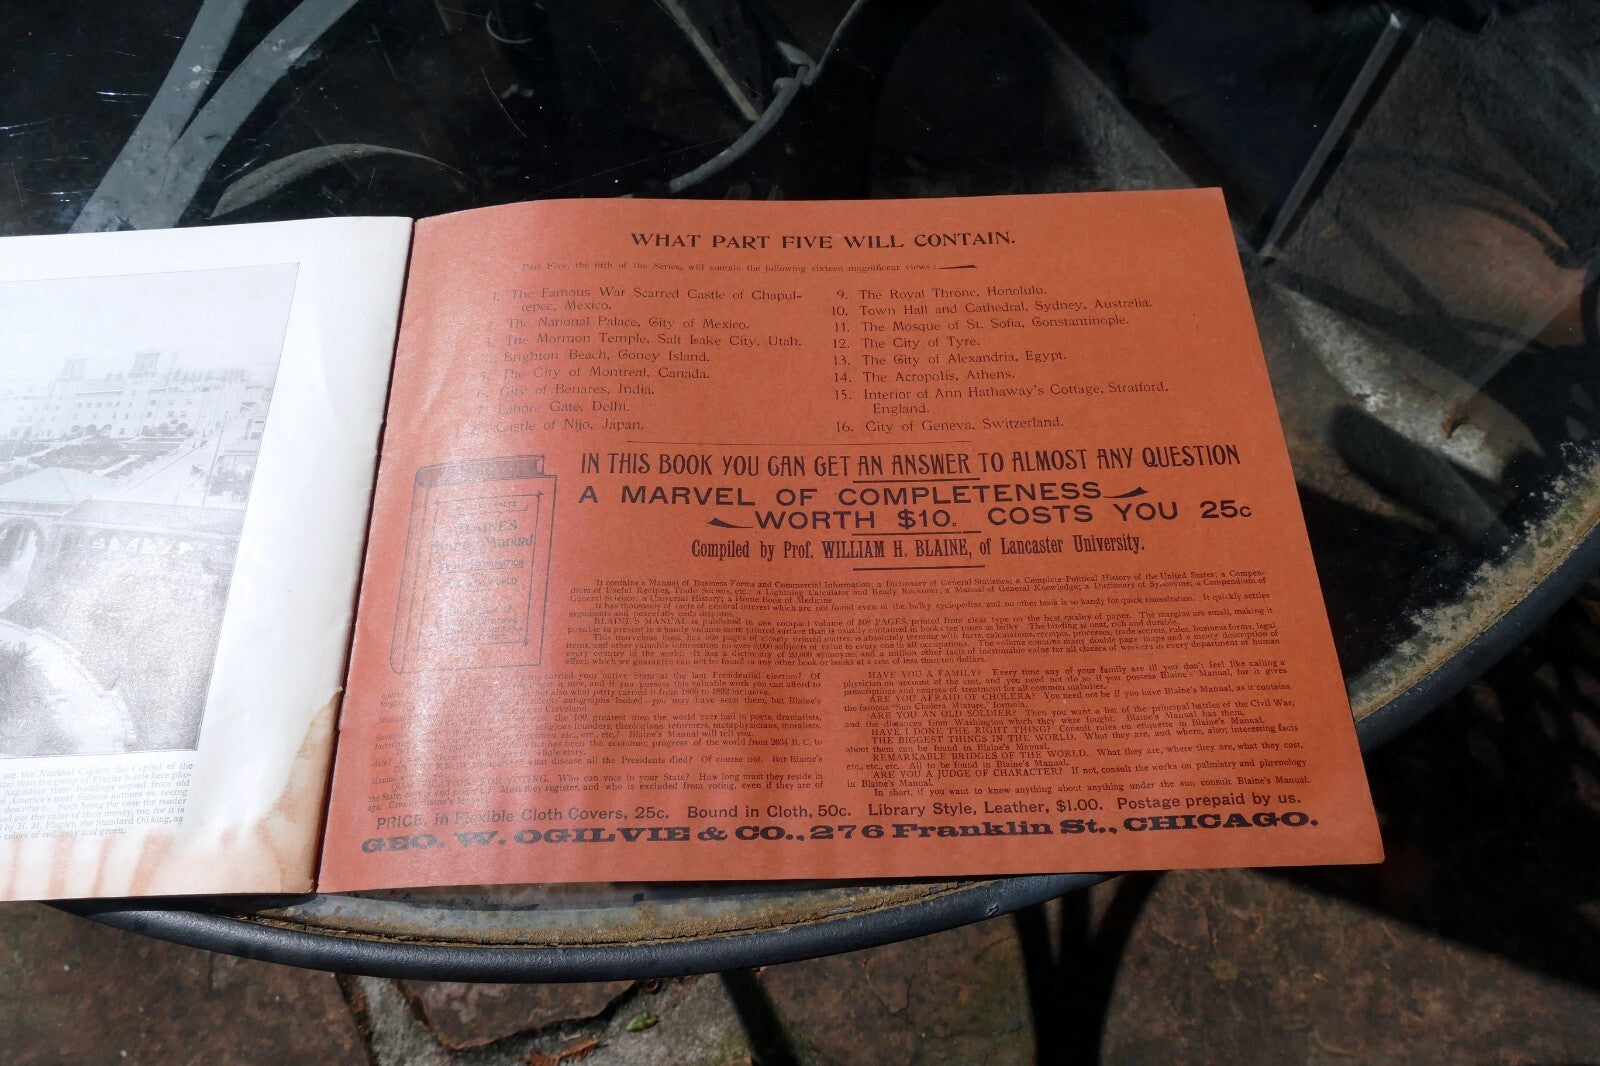 WHAT PART FIVE WILL CONTAIN.
Part Five, the fifth of the Series, will contain the following sixteen magnificent views:
1. The Famous War Scarred Castle of Chapul-
tepec, Mexico.
2. The National Palace, City of Mexico.
3. The Mormon Temple, Salt Lake City, Utah.
4. Brighton Beach, Coney Island.
5. The City of Montreal, Canada.
6. City of Benares, India.
7. Lahore Gate, Delhi.
8. Castle of Nijo, Japan.
9. The Royal Throne, Honolulu.
10. Town Hall and Cathedral, Sydney, Australia.
11. The Mosque of St. Sofia, Constantinople.
12. The City of Tyre.
13. The City of Alexandria, Egypt.
14. The Acropolis, Athens.
15. Interior of Ann Hathaway's Cottage, Stratford.
England.
16. City of Geneva, Switzerland.
IN THIS BOOK YOU CAN GET AN ANSWER TO ALMOST ANY QUESTION
A MARVEL OF COMPLETENESS
WORTH $10. COSTS YOU 25c
Compiled by Prof. WILLIAM H. BLAINE, of Lancaster University.
BLAINE'S
It contains a Manual of Business Forms and Commercial Information; a Dictionary of General Statistics; a Complete Political History of the United States; a Compen-
dium of Useful Recipes, Trade Secrets, etc.; a Lightning Calculator and Ready Reckoner; a Manual of General Knowledge; a Dictionary of Synonyms; a Compendium of
General Science; a Universal History; a Home Book of Medicine.
It has thousands of facts of general interest which are not found even in the bulky cyclopedias, and no other book is so handy for quick consultation. It quickly settles
arguments and peacefully ends disputes.
BLAINE'S MANUAL is published in one compact volume of 508 PAGES, printed from clear type on the best quality of paper. The margins are small, making it
possible to present in a handy volume more printed surface than is usually contained in books ten times as bulky. The binding is neat, rich and durable.
This marvelous book has 508 pages of closely printed matter, is absolutely teeming with facts, calculations, receipts, processes, trade secrets, rules, business forms, legal
items, and other valuable information on over 8,000 subjects of value to every one in all occupations. The volume contains many double page maps and a meaty description of
every country in the world. It has a dictionary of 20,000 synonyms, and a million other facts of inestimable value for all classes of workers in every department of human
effort, which we guarantee can not be found in any other book or books at a cost of less than ten dollars.
carried your native State at the last Presidential election? Of
it now, and if you possess this valuable work you can afford to
but also what party carried it from 1860 to 1892 inclusive.
autographs looked—you may have seen them, but Blaine's
to Cleveland.
the 100 greatest men the world ever had in poets, dramatists,
religious founders, theologians, reformers, metaphysicians, moralists,
etc., etc., etc.? Blaine's Manual will tell you.
what has been the economic progress of the world from 2634 B. C. to
whole story.
what disease all the Presidents died? Of course not. But Blaine's
QUALIFICATIONS FOR VOTING. Who can vote in your State? How long must they reside in
the State, Must they register, and who is excluded from voting, even if they are of
age. Consult Blaine's Manual.
HAVE YOU A FAMILY? Every time any of your family are ill you don't feel like calling a
physician on account of the cost, and you need not do so if you possess Blaine's Manual, for it gives
prescriptions and courses of treatment for all common maladies.
ARE YOU AFRAID OF CHOLERA? You need not be if you have Blaine's Manual, as it contains
the famous "Sun Cholera Mixture," formula.
ARE YOU AN OLD SOLDIER? Then you want a list of the principal battles of the Civil War,
and the distances from Washington which they were fought. Blaine's Manual has them.
HAVE I DONE THE RIGHT THING? Consult rules on etiquette in Blaine's Manual.
THE BIGGEST THINGS IN THE WORLD. What they are, and where, also; interesting facts
about them can be found in Blaine's Manual.
REMARKABLE BRIDGES OF THE WORLD. What they are, where they are, what they cost,
etc., etc., etc. All to be found in Blaine's Manual.
ARE YOU A JUDGE OF CHARACTER? If not, consult the works on palmistry and phrenology
in Blaine's Manual.
In short, if you want to know anything about anything under the sun consult Blaine's Manual.
PRICE, in Flexible Cloth Covers, 25c. Bound in Cloth, 50c. Library Style, Leather, $1.00. Postage prepaid by us.
GEO. W. OGILVIE & CO., 276 Franklin St., CHICAGO.
are the National Capitol, the Capitol of the
these buildings copied from old
of America's most famous authors on seeing
describe it. Such being the case the reader
got the value of their money, too, for it is
by H. M. Flagler, the Standard Oil king, as
colors of red, gray and green.